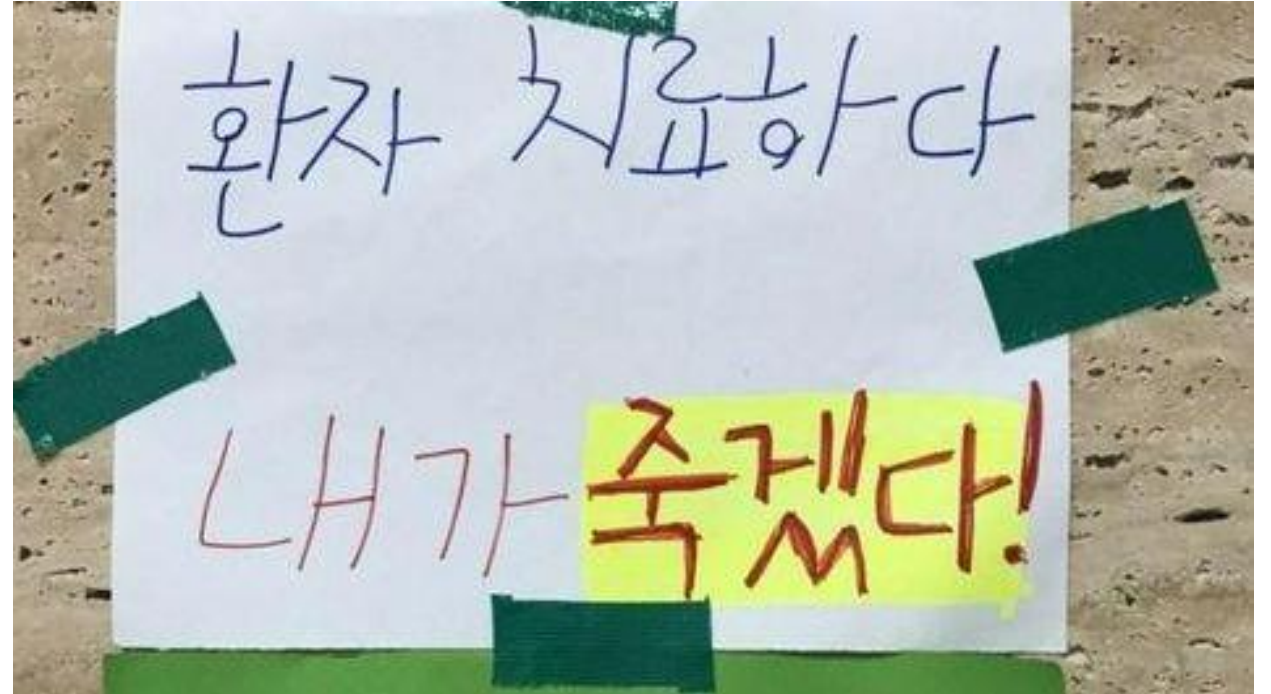 환자 치료하다
내가 죽겠다!